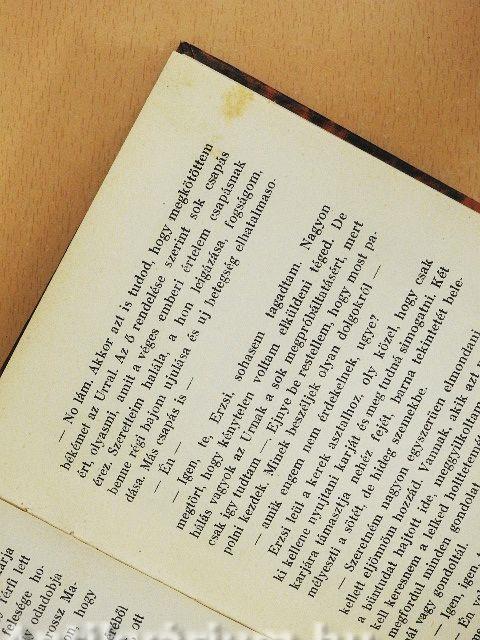 — No lám. Akkor azt is tudod, hogy megkötöttem
békémet az Urral. Az ő rendelése szerint sok csapás
ért, olyasmi, amit a véges emberi értelem csapásnak
érez. Szeretteim halála, a hon leigázása, fogságom,
benne régi bajom ujulása és uj betegség elhatalmaso-
dása. Más csapás is —
— Én —
— Igen, te, Erzsi, sohasem tagadtam. Nagyon
megtört, hogy kénytelen voltam elküldeni téged. De
hálás vagyok az Urnak a sok megpróbáltatásért, mert
csak igy tudtam —. Ejnye be restellem, hogy most pa-
polni kezdek. Minek beszéljek olyan dolgokról —
— amik engem nem érdekelnek, ugye?
Erzsi leül a kerek asztalhoz, oly közel, hogy csak
ki kellene nyujtani karját és meg tudná simogatni. Két
karjára támasztja nehéz fejét, barna tekintetét bele-
mélyeszti a sötét, de hideg szemekbe.
— Szeretném nagyon egyszerűen elmondani,
kellett eljönnöm hozzád. Vannak, akik azt
a bűntudat hajtott ide, meggyilkoltam
kell keresnem a lelked holttetemé
megfordul minden gondolat
tál vagy gondoltál.
— Igen, igen,
— Én,
arja
Térfi lett
felesége ho-
odadobja
orosz Ma-
om hogy
eréből
ott